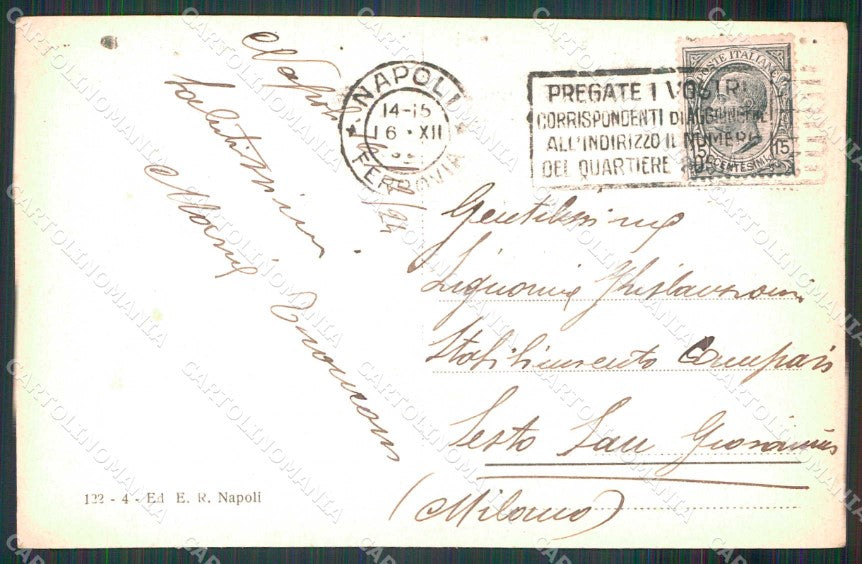 Napoli
/24
Salutissimi
Maria
NAPOLI
14-15
16 · XII
FERROVIA
PREGATE I VOSTRI
CORRISPONDENTI DI AGGIUNGERE
ALL'INDIRIZZO IL NUMERO
DEL QUARTIERE POSTALE
POSTE ITALIANE
15
CENTESIMI
Gentilissima
Signorina
Stabilimento Campari
Sesto San Giovanni
(Milano)
122 - 4 - Ed. E. R. Napoli
CARTOLINOMANIA